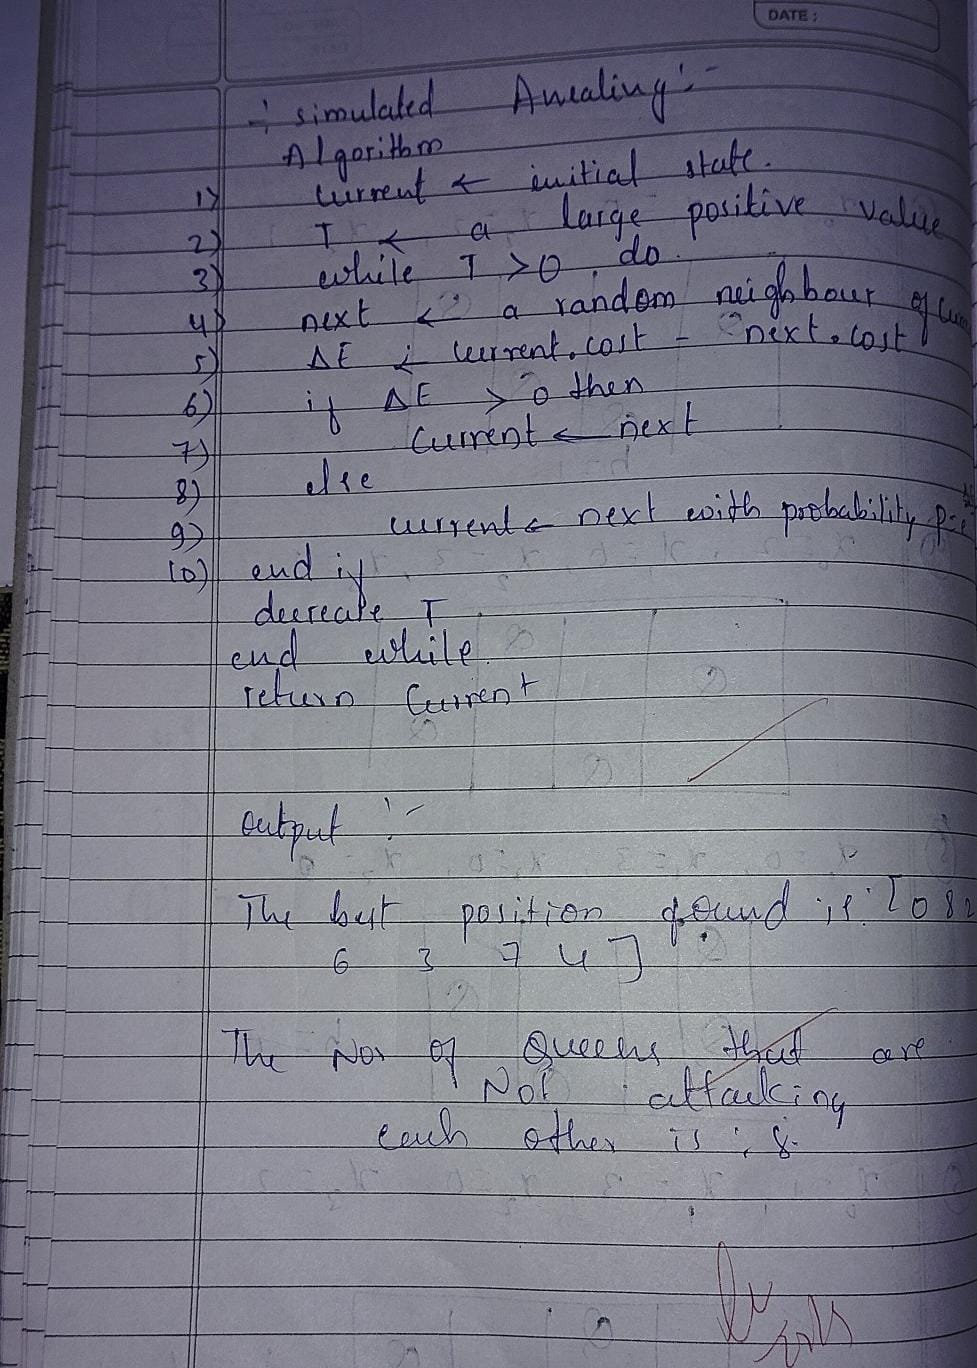 DATE:
:- simulated Anealing :-
Algorithm
1) current ← initial state.
2) T ← a large positive value
3) while T > 0 do
4) next ← a random neighbour of
5) ΔE ← current.cost - next.cost
6) if ΔE > 0 then
7) Current ← next
8) else
9) current ← next with probability p=e
10) end if
decreate T
end while
return Current
output :-
The best position found is: [0 8 2
6 3 7 4 ]
The Nos of Queens that are
Not attacking
each other is : 8.